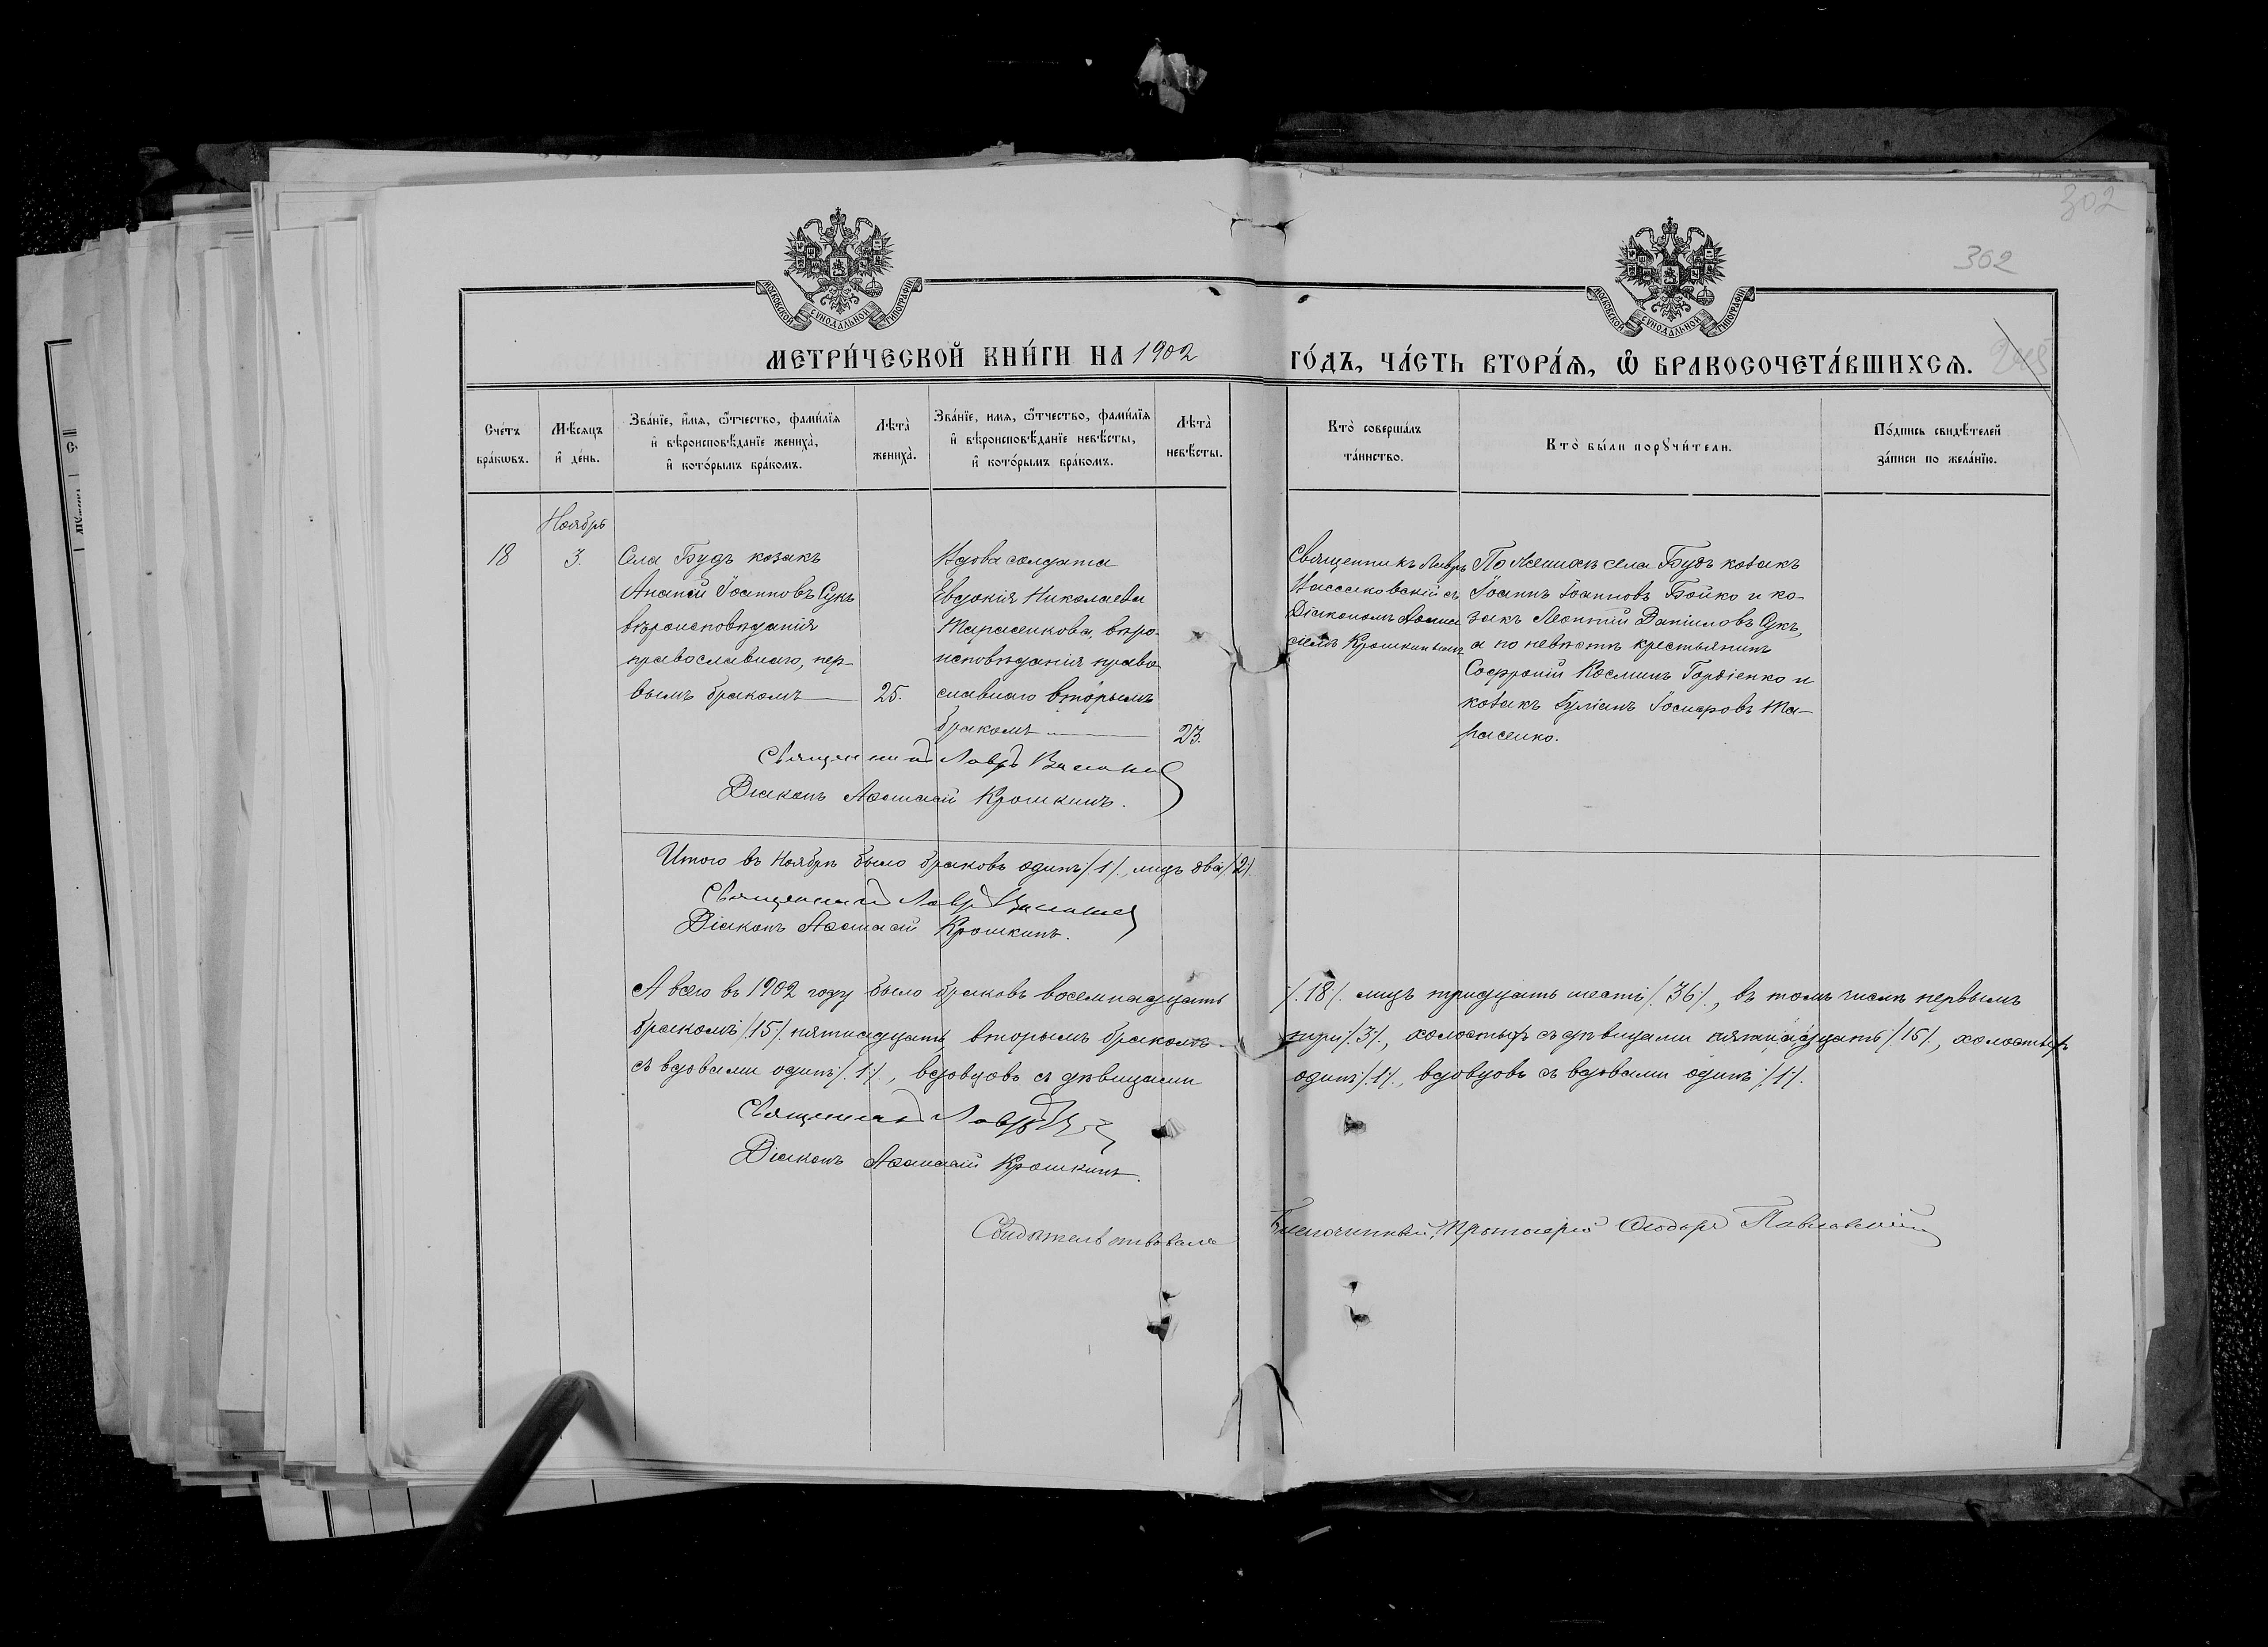 302
302
МОСКОВСКОЙ СѴНОДАЛЬНОЙ ТИПОГРАФІИ
МОСКОВСКОЙ СѴНОДАЛЬНОЙ ТИПОГРАФІИ
МЕТРИ́ЧЕСКОЙ КНИ́ГИ НА 1902
ГО́ДЪ, ЧА́СТЬ ВТОРА́Ѧ, Ѽ БРАКОСОЧЕТА́ВШИХСѦ.
Сче́тъ
бра́кωвъ.
Мѣ́сѧцъ
и҆ де́нь.
Зва́нїе, и҆́мѧ, ѻ҆́тчество, фами́лїѧ
и҆ вѣроисповѣ́данїе жениха̀,
и҆ кото́рымъ бра́комъ.
Лѣта̀
жениха̀.
Зва́нїе, имѧ, ѻ҆́тчество, фами́лїѧ
и҆ вѣроисповѣ́данїе невѣ́сты,
и҆ кото́рымъ бра́комъ.
Лѣта̀
невѣ́сты.
Кто̀ соверша́лъ
та́инство.
Кто̀ бы́ли порꙋчи́тели.
По́дпись свидѣ́телей
за́писи по жела́нїю.
Ноябрь
18
3.
Села Будъ козакъ
Ананій Іоанновъ Сукъ
вѣроисповѣданія
православнаго, пер-
вымъ бракомъ
25.
Вдова солдата
Евдокія Николаева
Тарасенкова вѣро-
исповѣданія право
славнаго вторымъ
бракомъ
23.
Священникъ Лавръ
съ
Діакономъ
Крошкинымъ
По женихѣ села Будъ козакъ
Іоаннъ Іоанновъ Бойко и ко-
закъ Леонтій Даніиловъ Сукъ,
а по невѣстѣ крестьянинъ
Софроній Косминъ Гордіенко и
козакъ Іуліанъ Та-
расенко.
Священникъ Лавръ
Діаконъ Крошкинъ.
Итого въ Ноябрѣ было браковъ одинъ /1/., лицъ два /2/.
Священникъ Лавръ
Діаконъ Крошкинъ.
А всего въ 1902 году было браковъ восемнадцать /.18/. лицъ тридцать шесть /.36/., въ томъ числѣ первымъ
бракомъ /15/. пятнадцать вторымъ бракомъ три /.3/., холостыхъ съ дѣвицами пятнадцать /.15/., холостыхъ
съ вдовами одинъ /.1/., вдовцовъ съ дѣвицами одинъ /.1/., вдовцовъ съ вдовами одинъ /.1/.
Священникъ Лавръ
Діаконъ Крошкинъ.
Свидѣтельствовалъ Благочинный, Протоіерей Ѳеодоръ Павловскій